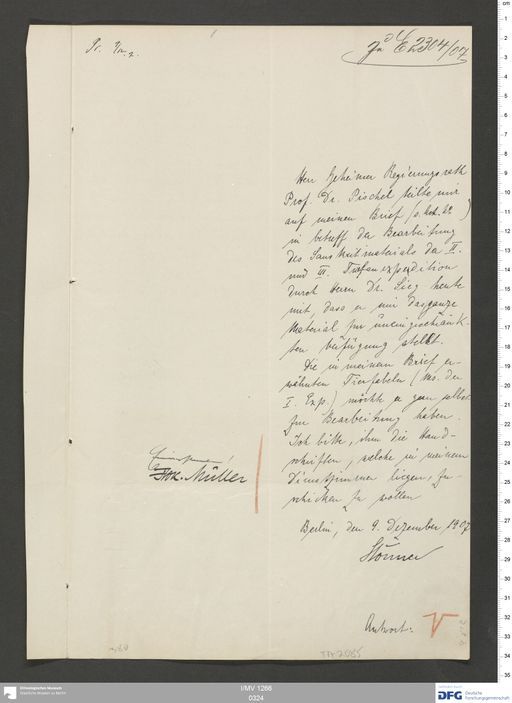 Zu E 2304/07
Herr Geheimer Regierungsrath
Prof. Dr. Pischel teilte mir
auf meinen Brief
in betreff der Bearbeitung
des Sanskritmaterials der II.
und III. Turfanexpedition
durch Herrn Dr. Sieg heute
mit, dass er mir das ganze
Material zur uneingeschränk-
ten Verfügung stellt.
Die in meinem Brief er-
wähnten Tierfabeln (Ms. der
I. Exp.) möchte er gern selber
zur Bearbeitung haben.
Ich bitte, ihm die Hand-
schriften, welche in meinem
Dienstzimmer liegen, zu-
schicken zu wollen
Berlin, den 9. Dezember 1907
Stönner
Müller
Antwort.
TA 2085
Ethnologisches Museum
Staatliche Museen zu Berlin
I/MV 1266
0324
gefördert durch
DFG Deutsche
Forschungsgemeinschaft
cm
0
1
2
3
4
5
6
7
8
9
10
11
12
13
14
15
16
17
18
19
20
21
22
23
24
25
26
27
28
29
30
31
32
33
34
35